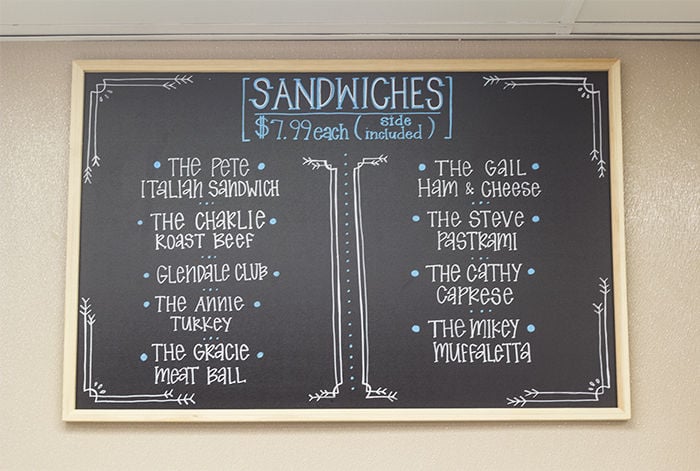 SANDWICHES
$7.99 each (side included)
THE PETE
ITALIAN SANDWICH
THE CHARLIE
ROAST BEEF
GLENDALE CLUB
THE ANNIE
TURKEY
THE GRACIE
MEAT BALL
THE GAIL
HAM & CHEESE
THE STEVE
PASTRAMI
THE CATHY
CAPRESE
THE MIKEY
MUFFALETTA